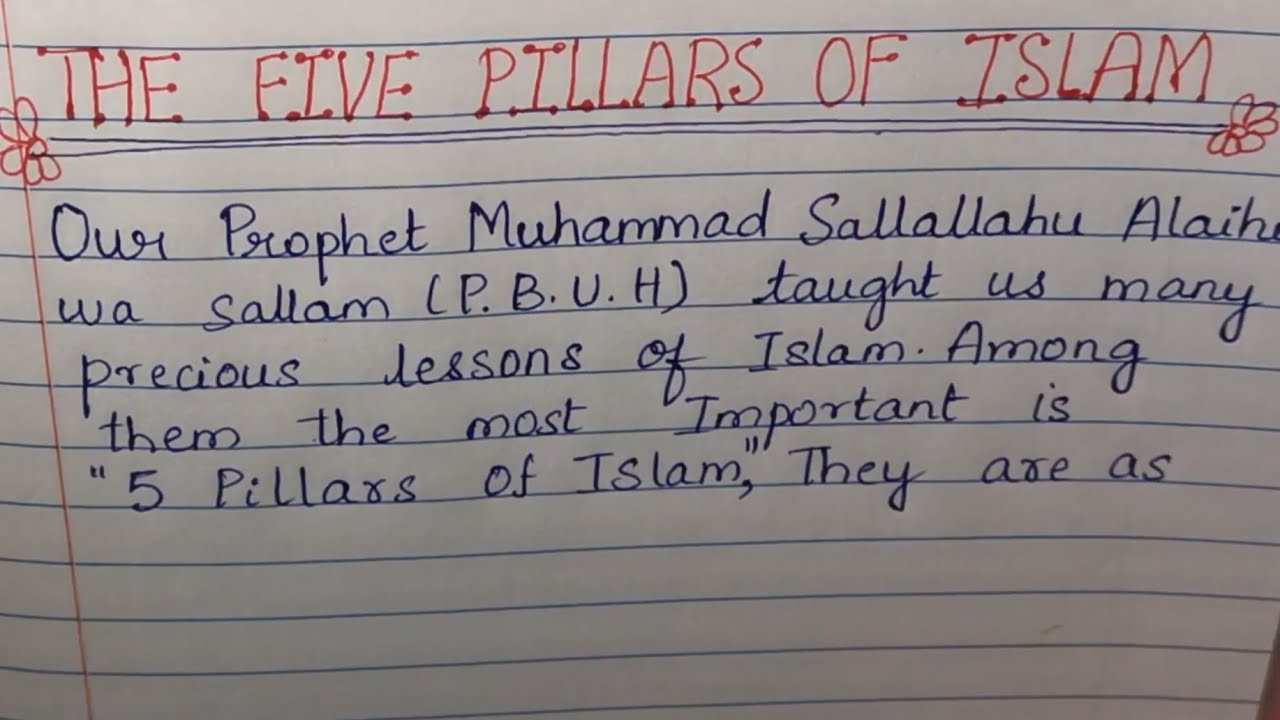 THE FIVE PILLARS OF ISLAM
Our Prophet Muhammad Sallallahu Alaihi
wa sallam (P.B.U.H) taught us many
precious lessons of Islam. Among
them the most Important is
"5 Pillars of Islam," They are as